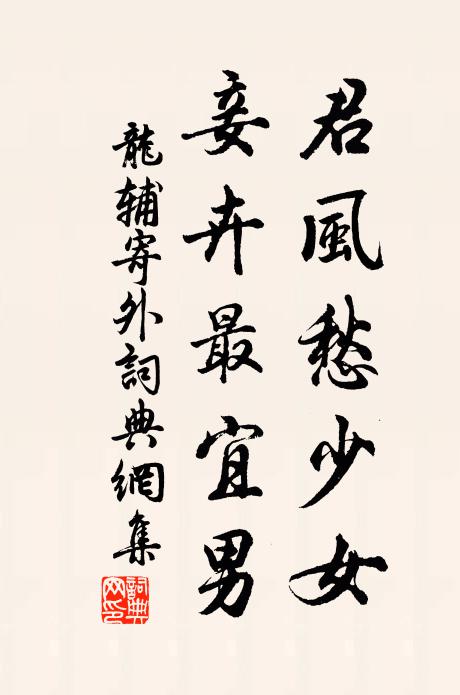 君風愁少女
妾卉最宜男
龍輔寄外詞典網集
詞典网印